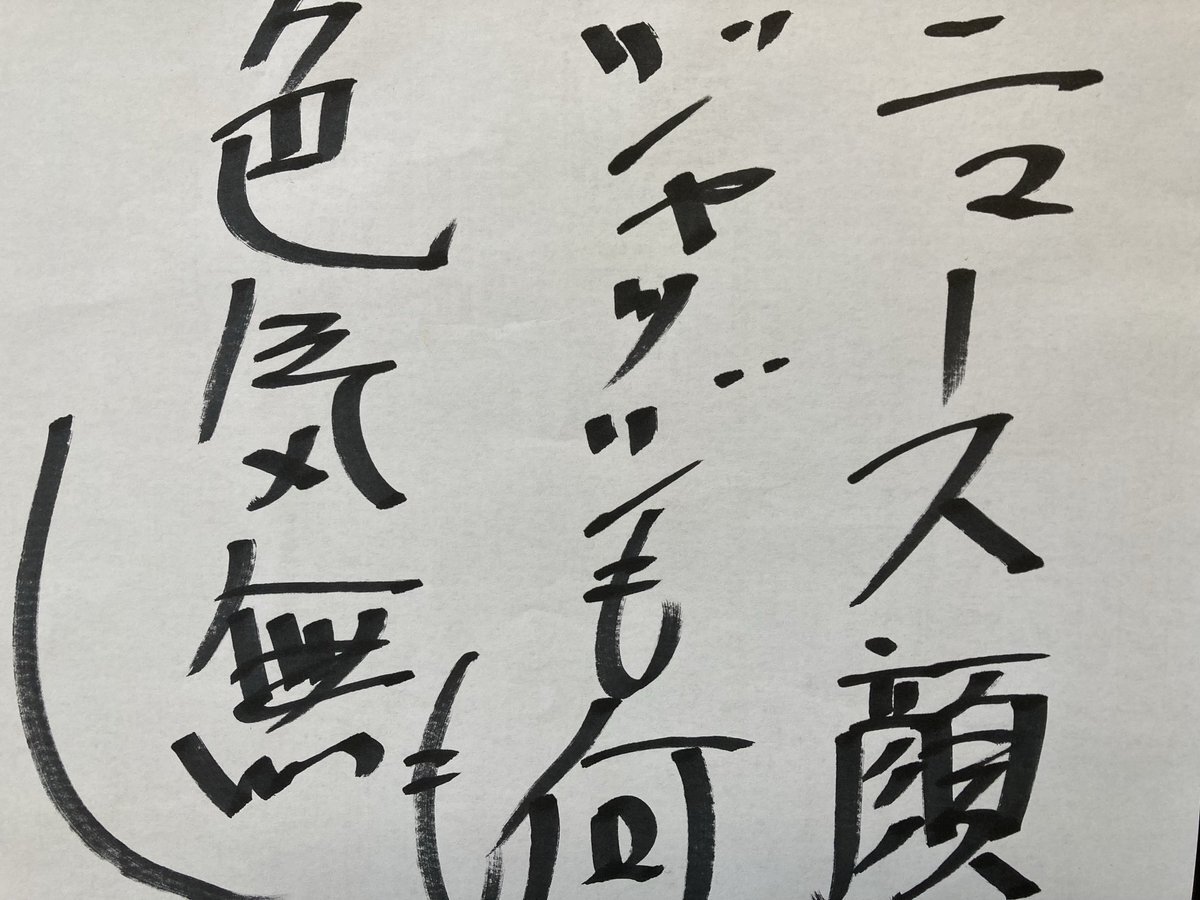 ニュース顔
ジャッジも何も
色気無し